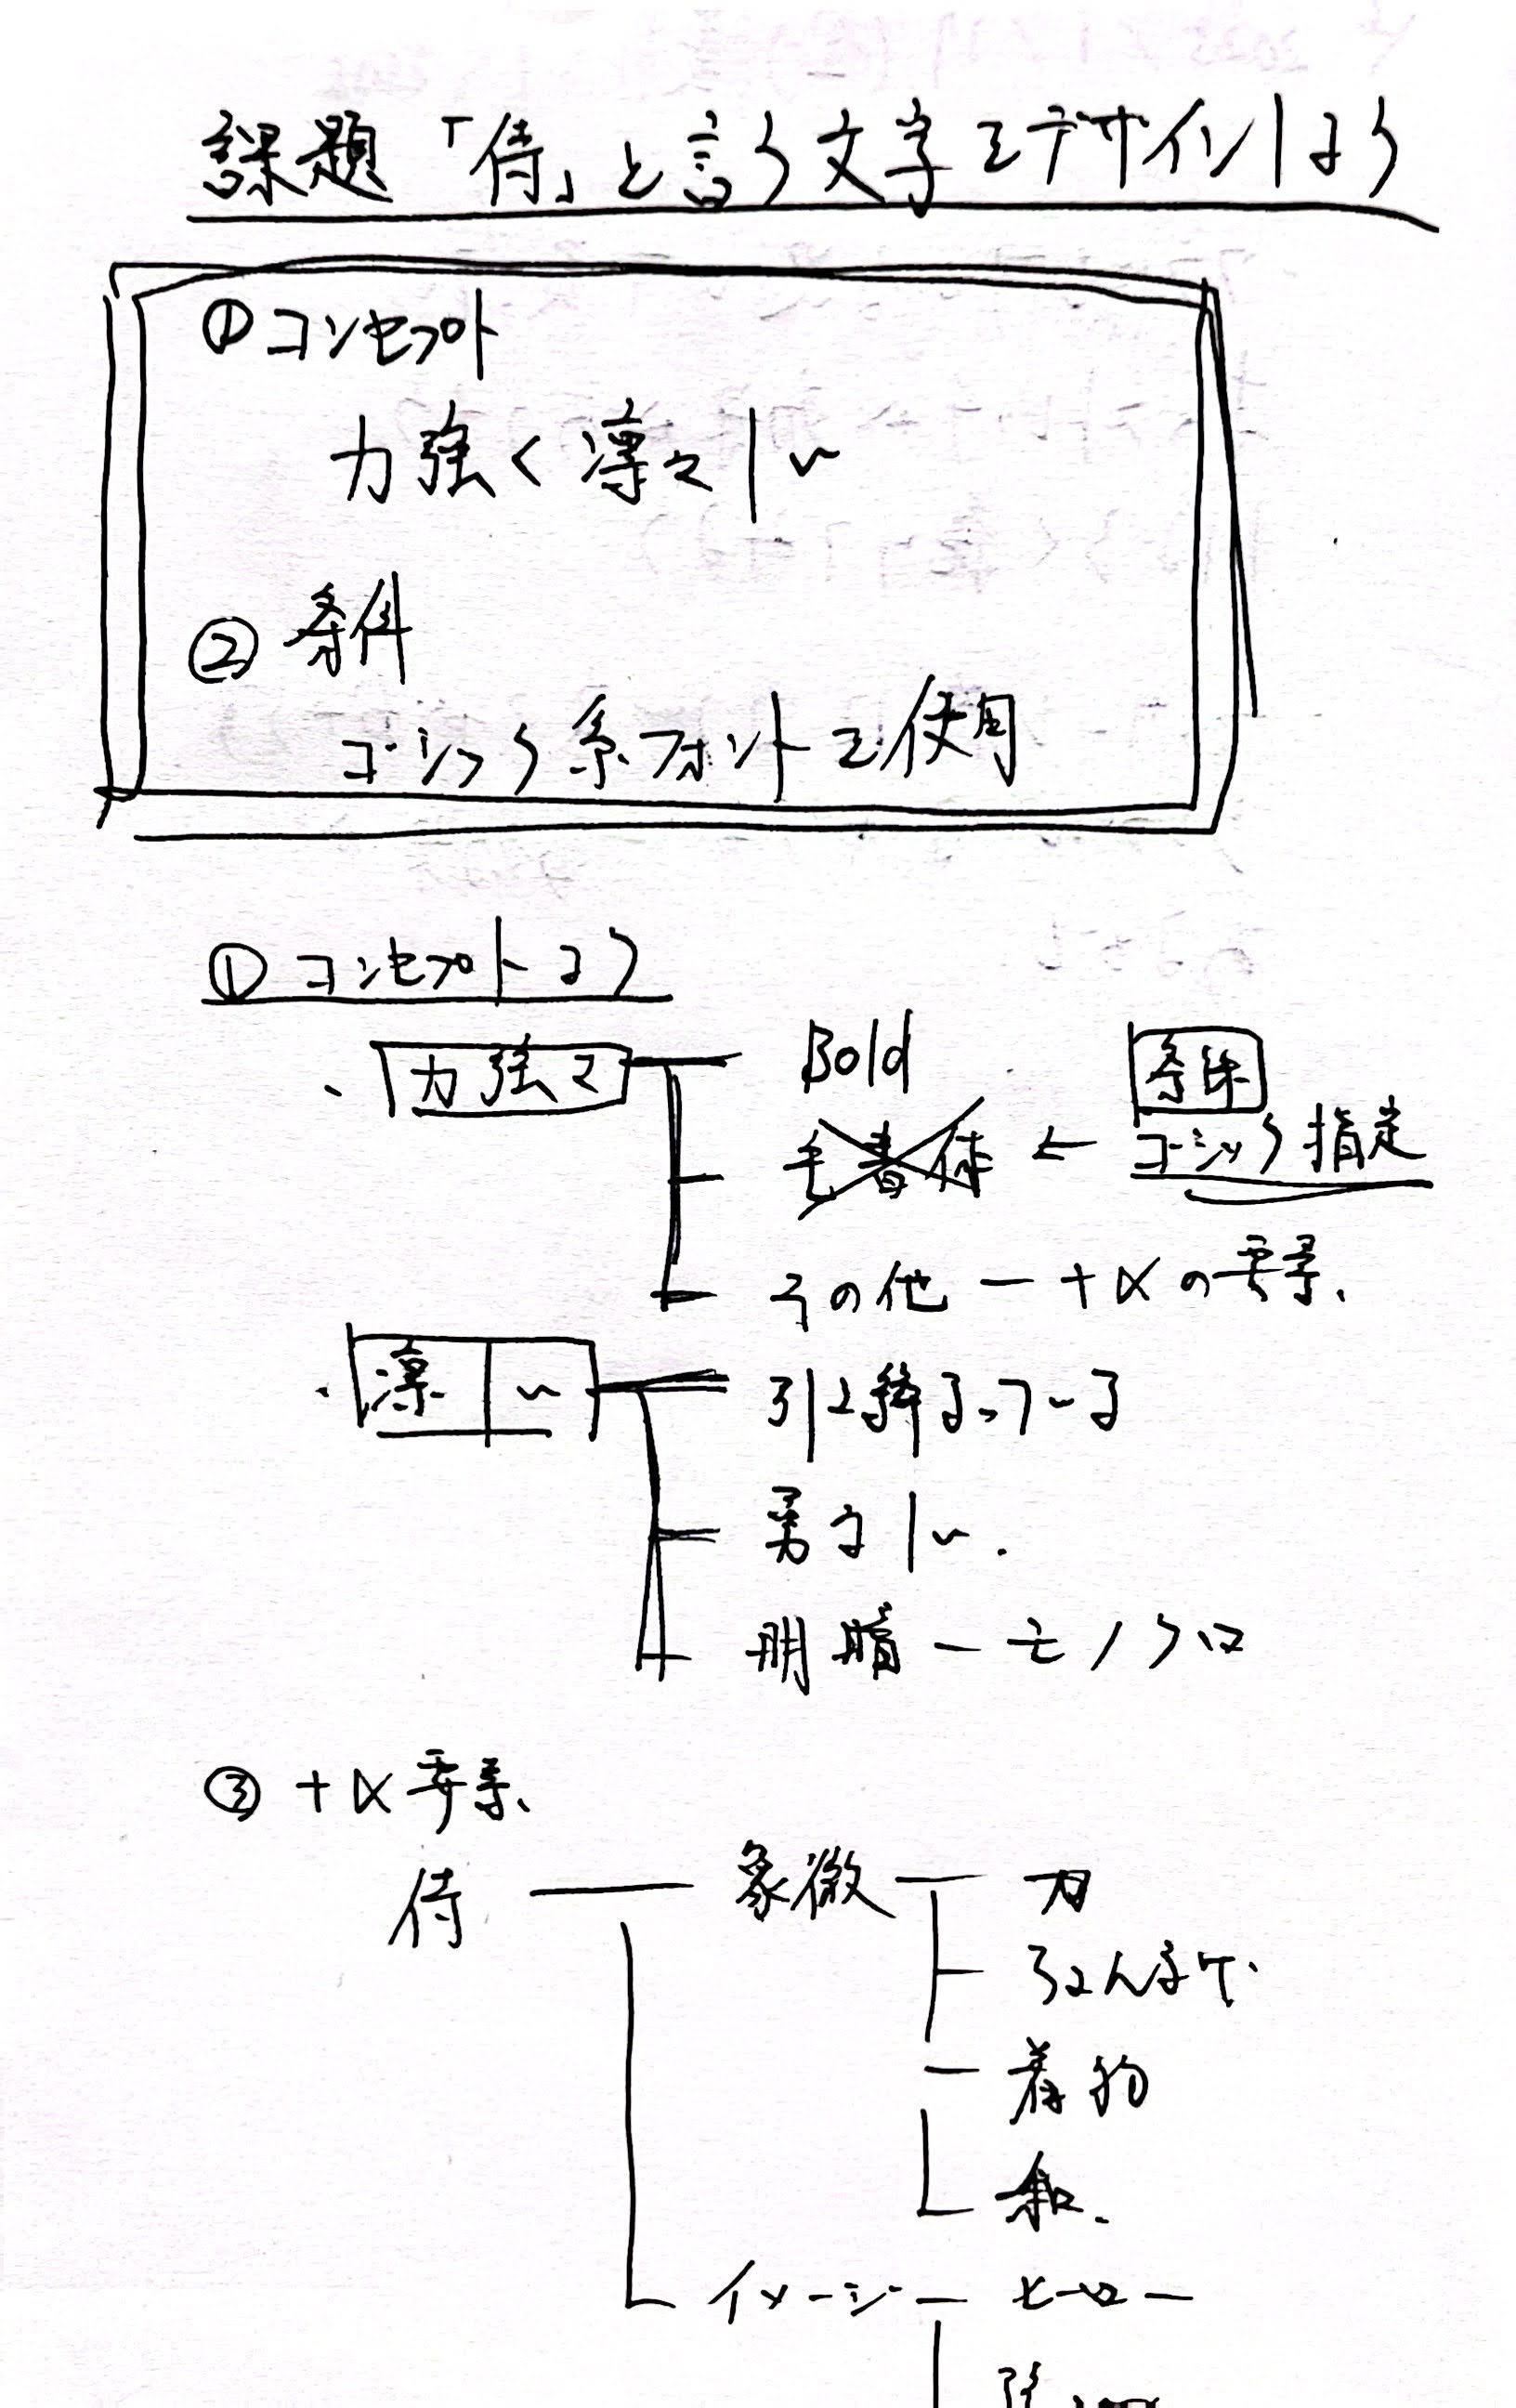 課題「侍」と言う文字をデザインしよう
①コンセプト
力強く凛々しい
②条件
ゴシック系フォントを使用
①コンセプトより
・力強さ Bold 条件
毛書体 ← ゴシック指定
その他 ー +αの要素
・凛しい 引き締まっている
勇ましい.
明暗 ー モノクロ
③ +α要素
侍 象徴 刀
ちょんまげ
着物
和
イメージ ヒーロー